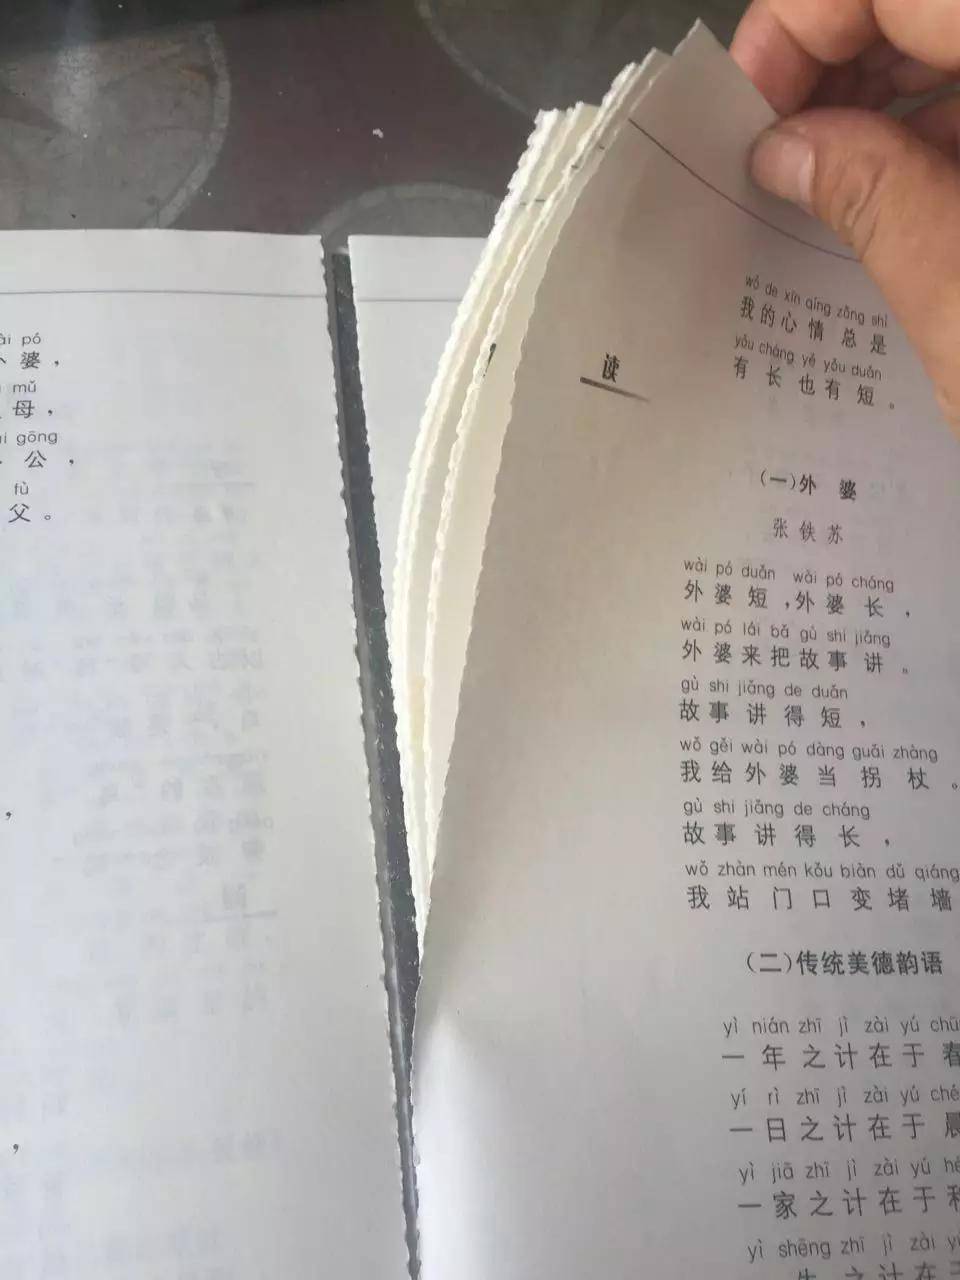 ài pó
婆，
mǔ
母，
gōng
公，
fù
父。
读
wǒ de xīn qíng zǒng shì
我的心情总是
yǒu cháng yě yǒu duǎn
有长也有短。
(一)外婆
张铁苏
wài pó duǎn wài pó cháng
外婆短，外婆长，
wài pó lái bǎ gù shi jiǎng
外婆来把故事讲。
gù shi jiǎng de duǎn
故事讲得短，
wǒ gěi wài pó dàng guǎi zhàng
我给外婆当拐杖。
gù shi jiǎng de cháng
故事讲得长，
wǒ zhàn mén kǒu biàn dǔ qiáng
我站门口变堵墙
(二)传统美德韵语
yì nián zhī jì zài yú
一年之计在于春
yí rì zhī jì zài yú
一日之计在于晨
yì jiā zhī jì zài yú
一家之计在于
yì shēng zhī jì zài
之计在